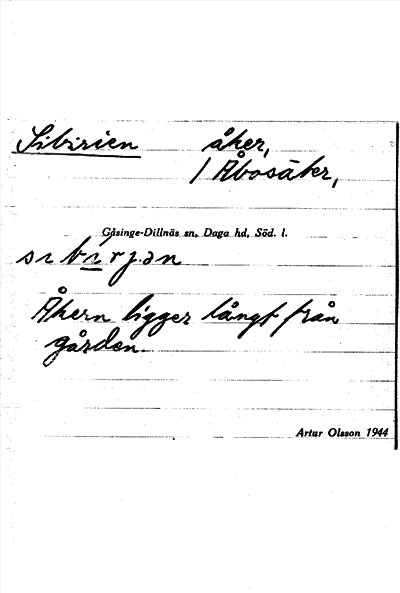 Sibirien åker,
/ Åbosäter,
Gåsinge-Dillnäs sn, Daga hd, Söd. l.
sɩbɩ́rjan
Åkern ligger långt från
gården.
Artur Olsson 1944